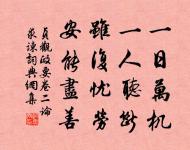 一日萬机
一人聽斷
雖復忧勞
安能盡善
貞觀政要卷二論
求諫詞典網集